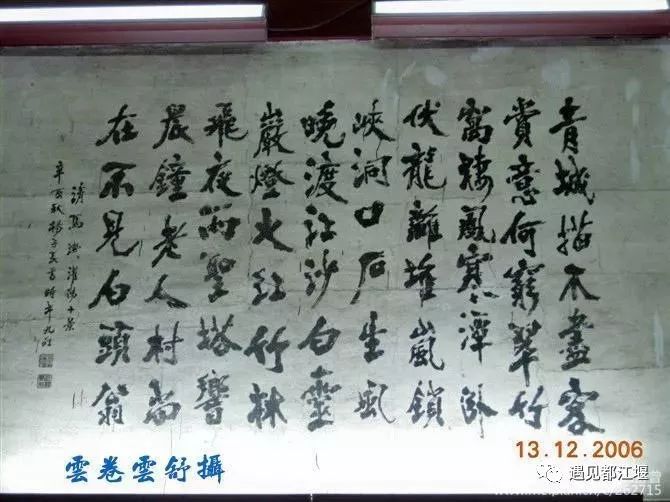 青城描不盡客
賞意何窮翠竹
寓棲鳳寒潭臥
伏龍離堆嵐鎖
峽洞口石生風
曉渡江沙白靈
巖燈火紅竹林
飛夜雨聖塔響
晨鐘老人村尚
在不見白頭翁
清馬灌陽十景
辛酉秋楊子書時年九
雲卷雲舒攝
13.12.2006
遇见都江堰